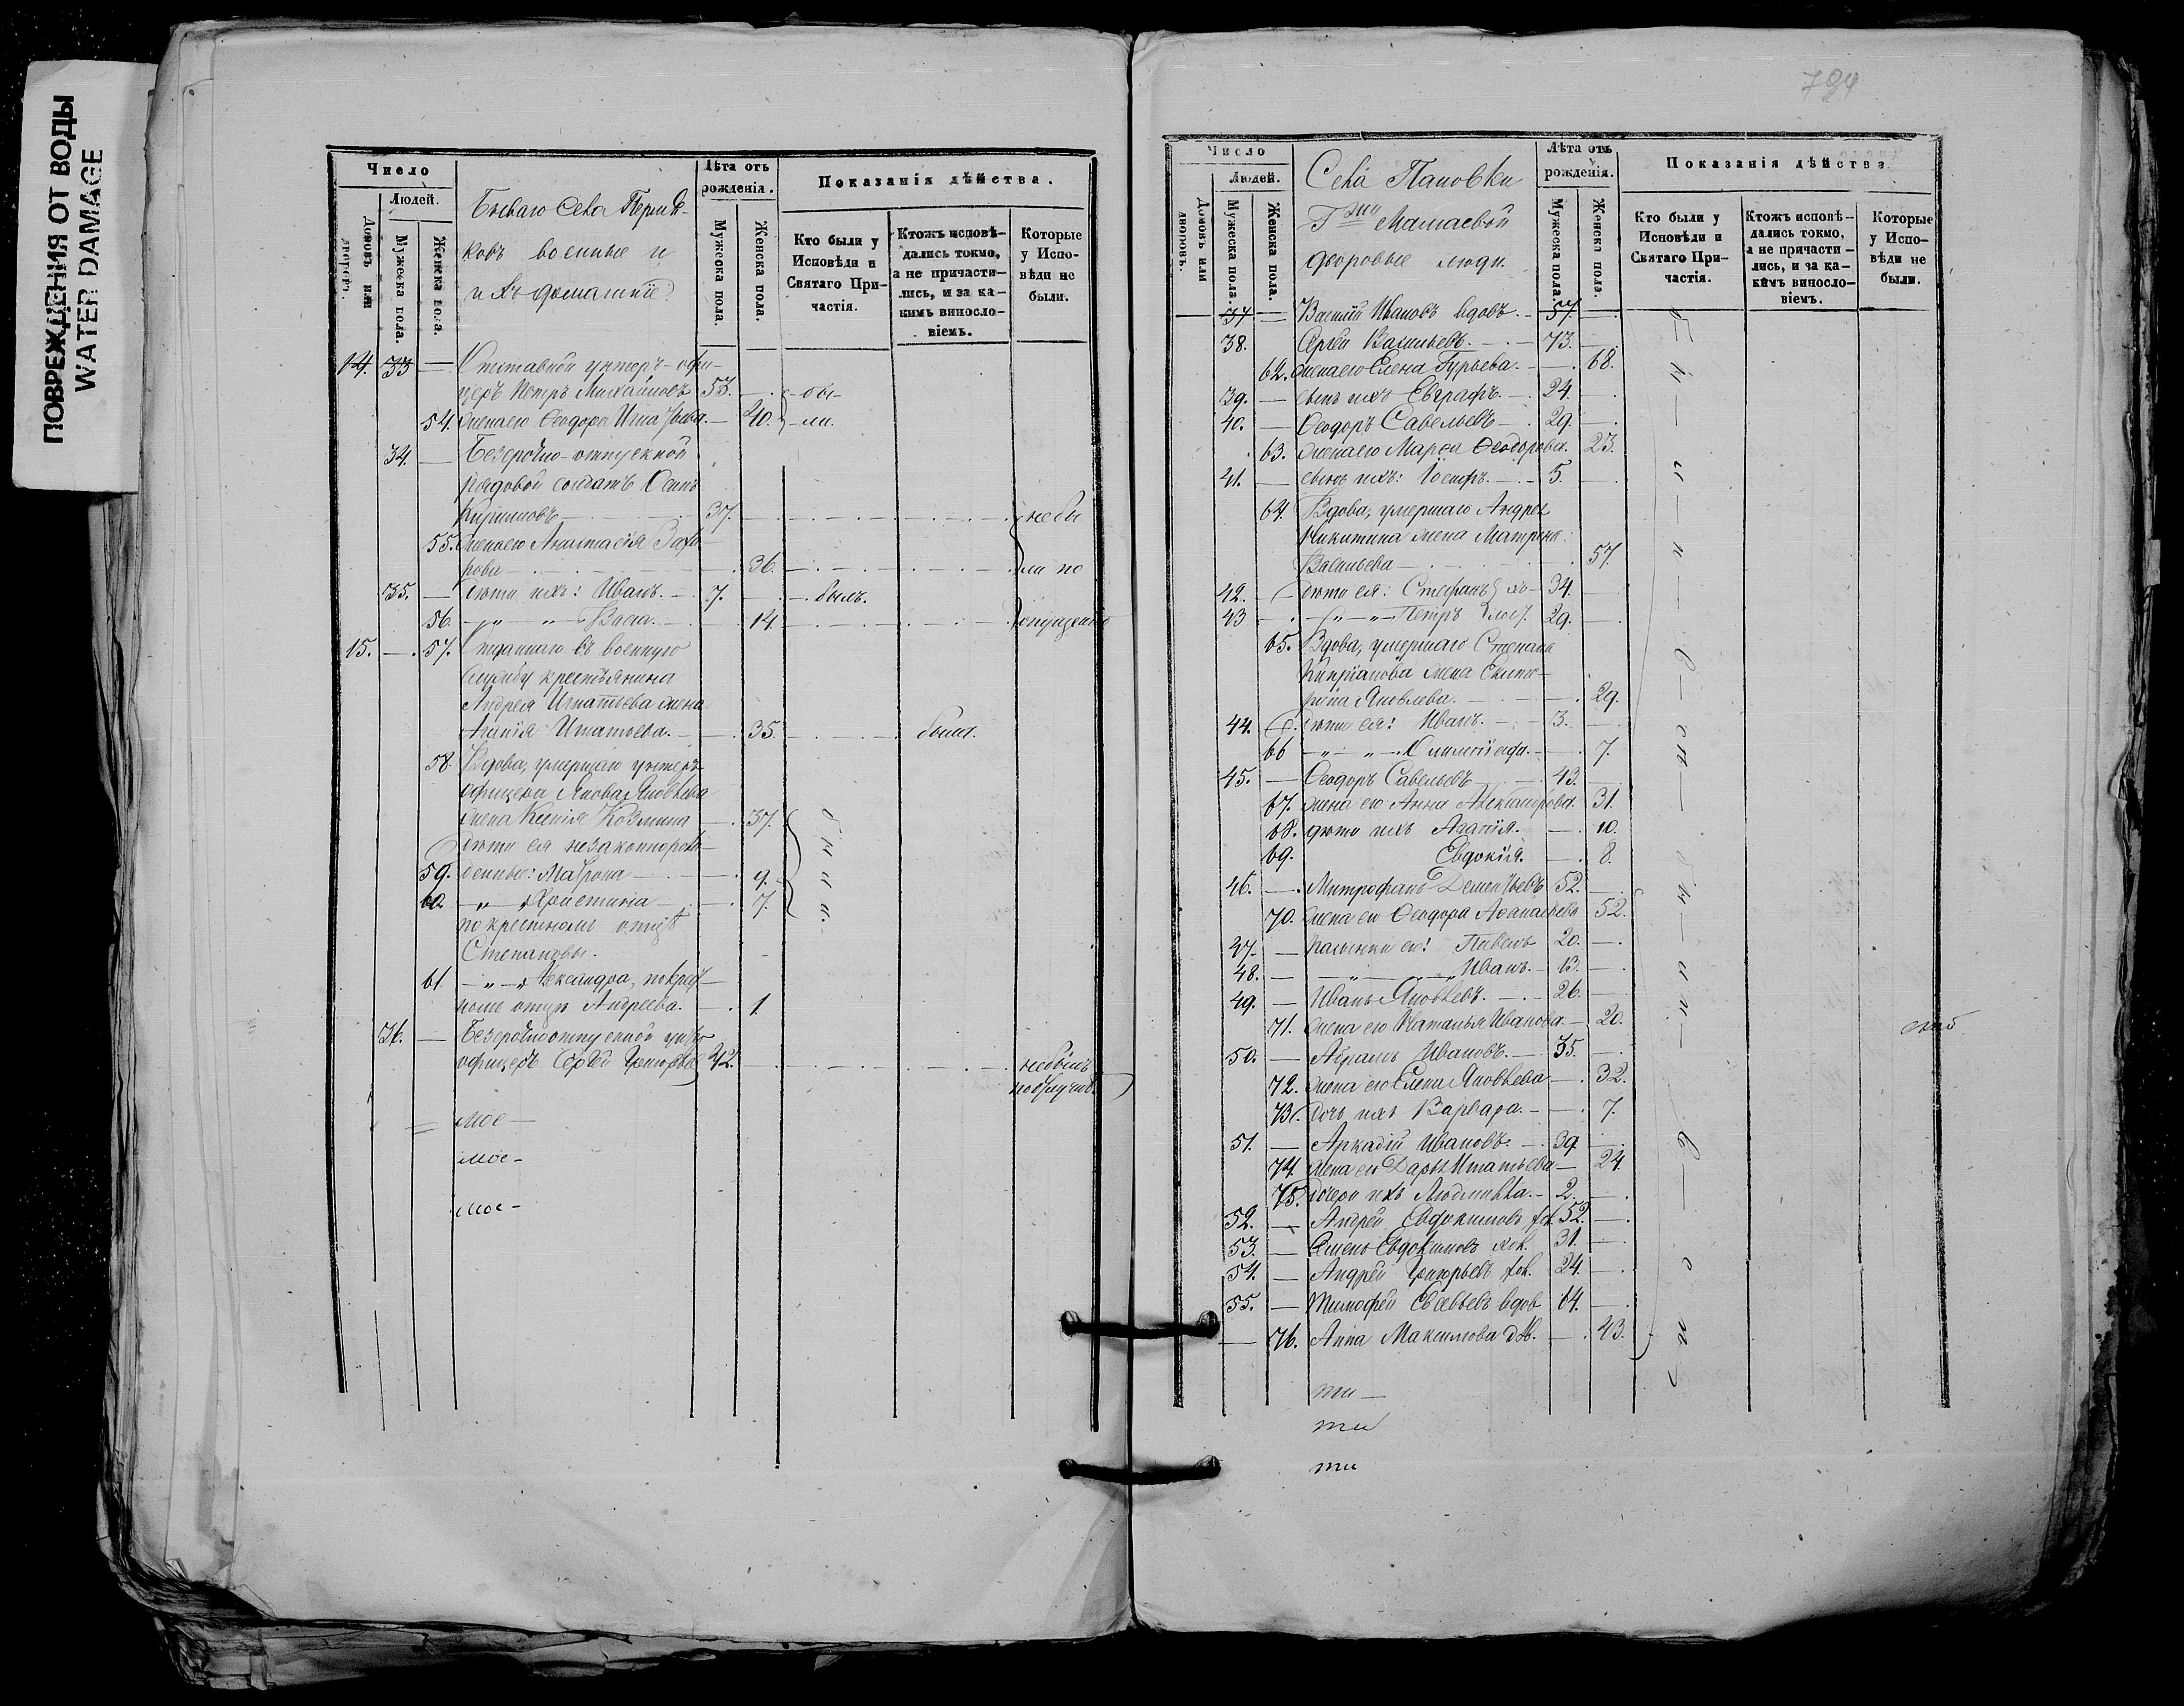 ПОВРЕЖДЕНИЯ ОТ ВОДЫ
WATER DAMAGE
Число
Людей.
Домовъ или дворовъ.
Мужеска пола.
Женска пола.
Бываго Села
ковъ военные и
ихъ домашніе
Лѣта отъ рожденія.
Мужеска пола.
Женска пола.
Показанія дѣйства.
Кто были у Исповѣди и Святаго Причастія.
Ктожъ исповѣдались токмо, а не причастились, и за какимъ винословіемъ.
Которые у Исповѣди не были.
14. 33 — Отставной унтеръ-офи-
церъ Петръ Михайловъ 53. — бы-
54. жена его Ѳеодора Игнатьева — 40. ли.
34. — Безсрочно-отпускной
рядовой солдатъ Осипъ
Кириловъ — 37. небы
55. жена его Анастасія Захо-
рова — 36. ли по
35. — дѣти ихъ: Иванъ. 7. — былъ.
56. — „ — „ — Васса. — 14. опущенію
15. — 57. Отданнаго въ военную
службу крестьянина
Андрея Игнатьева жена
Агапія Игнатьева. — 35. была.
58. Вдова, умершаго унтеръ
офицера Якова Яковлева
жена Ксенія Козмина — 37. были.
дѣти ея незаконнорож-
59. денные: Матрона — 9.
60. — „ — „ Христинія — 7.
по крестномъ отцѣ
Степановы.
61 — „ — „ Александра, по крест-
номъ отцѣ Андреева. — 1.
36. — Безсрочноотпускной унтеръ
офицеръ Сергѣй Григорьевъ 42. небылъ
по отлучкѣ
мос —
мос —
мос —
794
Число
Людей.
Домовъ или дворовъ.
Мужеска пола.
Женска пола.
Села Пановки
Гжи Мамаевой
дворовые люди.
Лѣта отъ рожденія.
Мужеска пола.
Женска пола.
Показанія дѣйства
Кто были у Исповѣди и Святаго Причастія.
Ктожъ исповѣдались токмо, а не причастились, и за какимъ винословіемъ.
Которые у Исповѣди не были.
37 — Василій Ивановъ вдовъ. 57. —
38. Сергѣй Васильевъ. 73. —
62. жена его Елена Гурьева. — 68.
39. — сынъ ихъ Евграфъ. 24. —
40. — Ѳеодоръ Савельевъ 29. —
63. жена его Марѳа Ѳеодорова. 23.
41. — сынъ ихъ: Іосифъ. 5. —
64. Вдова, умершаго Андрея
Никитина жена Матрона
Васильева — 57.
42. — дѣти ея: Стефанъ хо- 34. —
43 — „ — „ — Петръ лос. 29. —
65. Вдова, умершаго Степана
Кипріанова жена Екате-
рина Яковлева. — 29.
44. — дѣти ея: Иванъ. 3. —
66 — „ — „ — Олимпіада. — 7.
45. — Ѳеодоръ Савельевъ 43. —
67. жена его Анна Александрова. 31.
68. дѣти ихъ Агапія. — 10.
69. Евдокія. — 8.
46. — Митрофанъ Дементьевъ 52. —
70. жена его Ѳеодора Аѳанасьева 52.
47. — пасынки его: Павелъ 20. —
48. — „ — „ Иванъ. 13. —
49. — Иванъ Яковлевъ. 26. —
71. жена его Наталья Иванова — 20.
50. — Абрамъ Ивановъ. 35. —
72. жена его Елена Яковлева — 32.
73. дочь ихъ Варвара. — 7.
51. — Аркадій Ивановъ. 39 —
74. жена его Дарья Игнатьева — 24.
75. дочери ихъ Людмивла. 2. —
52. — Андрей Евдокимовъ хол. 52. —
53. — Семенъ Евдокимовъ хол. 31. —
54. — Андрей Григорьевъ хол. 24. —
55. — Тимофей Евсевьевъ вдов 64. —
— 76. Анна Максимова дѣв. — 43.
ти —
ти
ти